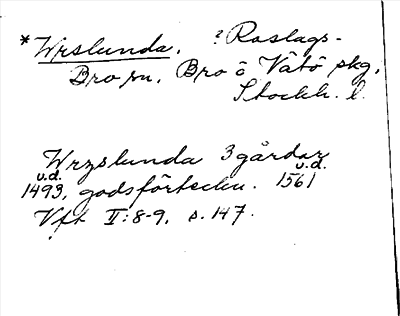 *Wrslunda. ? Roslags-
Bro sn, Bro o Vätö skg,
Stockh. l.
Wrzslunda 3 gårdar
u.d. u.d.
1493, godsförteckn. 1561
Vft II:8-9, s. 147.